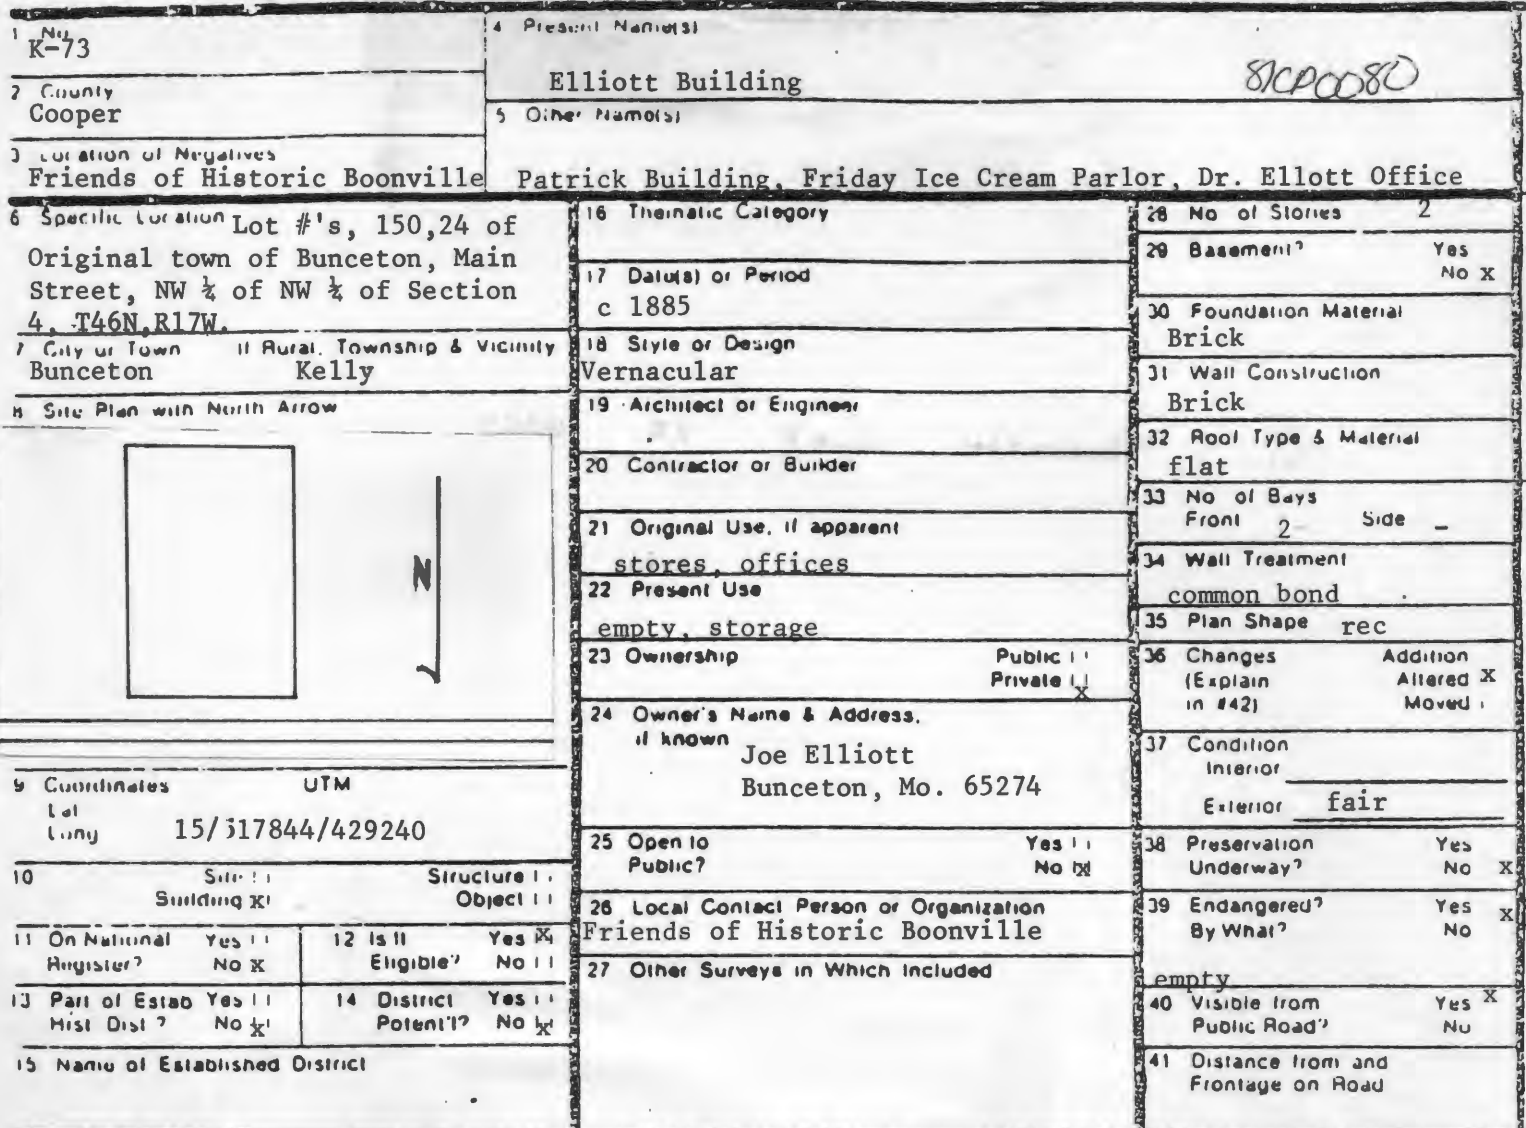 1 No.
K-73
2 County
Cooper
3 Location of Negatives
Friends of Historic Boonville
4 Present Name(s)
Elliott Building
81CP0080
5 Other Name(s)
Patrick Building, Friday Ice Cream Parlor, Dr. Ellott Office
6 Specific Location Lot #'s, 150,24 of
Original town of Bunceton, Main
Street, NW ¼ of NW ¼ of Section
4, T46N,R17W.
7 City or Town If Rural, Township & Vicinity
Bunceton Kelly
8 Site Plan with North Arrow
N
9 Coordinates UTM
Lat
Long 15/517844/429240
10 Site Structure
Building x Object
11 On National Yes
Register? No x
12 Is It Yes x
Eligible? No
13 Part of Estab Yes
Hist Dist? No x
14 District Yes
Potent'l? No x
15 Name of Established District
16 Thematic Category
17 Date(s) or Period
c 1885
18 Style or Design
Vernacular
19 Architect or Engineer
20 Contractor or Builder
21 Original Use, if apparent
stores, offices
22 Present Use
empty, storage
23 Ownership Public
Private x
24 Owner's Name & Address,
if known
Joe Elliott
Bunceton, Mo. 65274
25 Open to Yes
Public? No x
26 Local Contact Person or Organization
Friends of Historic Boonville
27 Other Surveys in Which Included
28 No of Stories 2
29 Basement? Yes
No x
30 Foundation Material
Brick
31 Wall Construction
Brick
32 Roof Type & Material
flat
33 No of Bays
Front 2 Side -
34 Wall Treatment
common bond
35 Plan Shape rec
36 Changes Addition
(Explain Altered x
in #42) Moved
37 Condition
Interior
Exterior fair
38 Preservation Yes
Underway? No x
39 Endangered? Yes x
By What? No
empty
40 Visible from Yes x
Public Road? No
41 Distance from and
Frontage on Road